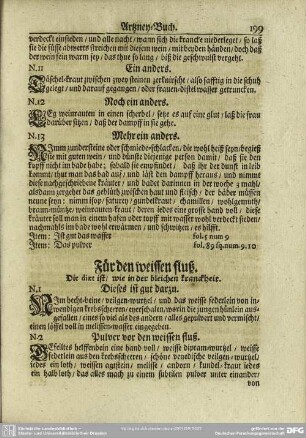 Artzney-Buch. 199
verdeckt einsieden / und alle nacht / wann sich die krancke niederleget / so laß
sie die füsse abwerts streichen mit diesem wein / mit beyden händen / doch daß
der wein fein warm sey / das thue so lang / biß die geschwulst vergeht.
N.11 Ein anders.
Täschel-kraut zwischen zwey steinen zerknirscht / also safftig in die schuh
gelegt / und darauf gegangen / oder frauen-distel wasser getruncken.
N.12 Noch ein anders.
Leg weinrauten in einen scherbel / setze es auf eine glut / laß die frau
darüber sitzen / daß der dampff in sie gehe.
N.13 Mehr ein anders.
Nimm zunderstein oder schmiede-schlacken / die wohl heiß seyn / begieß
sie mit guten wein / und dünste diejenige person damit / daß sie den
kopff nicht im bade habe; sobald sie empfindet / daß ihr der dunst in leib
kommt / thut man das bad auf / und läst den dampff heraus / und nimmt
diese nachgeschriebene kräuter / und badet darinnen in der woche 3 mahl
als dann
neune seyn: nimm isop / satureg / gundelkraut / chamillen / wohlgemuth /
bram-wurtz / weinrauten kraut / jedes eine grosse hand voll / diese
kräuter soll man in einen hafen oder topff mit wasser wohl verdeckt sieden /
nachmahls im bad wohl erwärmen / und schwitzen / es hilfft.
Item: Ist gut das wasser fol. 5 num 9
Item: Das pulver fol. 89 sq. num. 9. 10
Für den weissen fluß.
Die diæt ist / wie in der bleichen kranckheit.
N.1 Dieses ist gut darzu.
Nim hecht-beine / veilgen-wurtzel / und das weisse federlein von in-
wendigen krebsscheeren / eyerschalen / worin die jungen hünlein aus-
gefallen / eines so viel als des andern / alles gepulvert und vermischt /
einen löffel voll in melissen-wasser eingegeben.
N.2 Pulver vor den weissen fluß.
helffenbein eine hand voll / weisse diptam-wurtzel / weisse
federlein aus den krebsscheeren / schöne venedische veilgen-wurtzel /
jedes ein loth / weissen agstein / melisse / andorn / kundel-kraut / jedes
ein halb loth / das alles mach zu einem subtilen pulver unter einander /
von